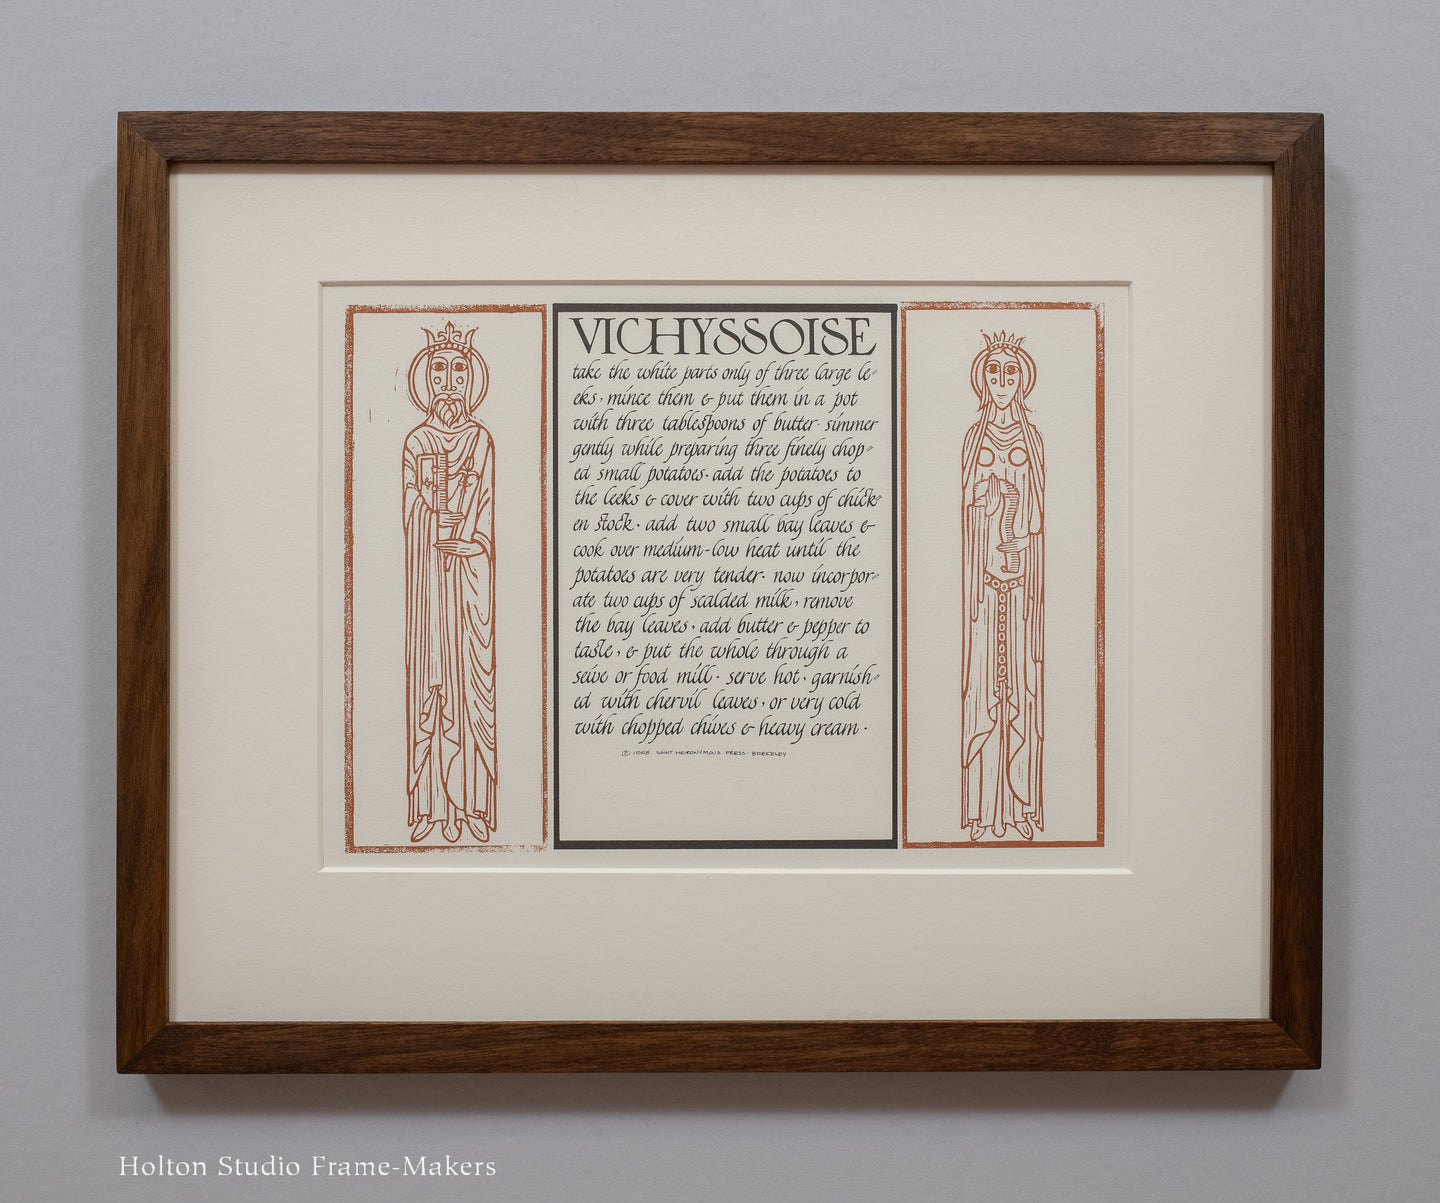 VICHYSSOISE
take the white parts only of three large le=
eks · mince them & put them in a pot
with three tablespoons of butter · simmer
gently while preparing three finely chop=
ed small potatoes · add the potatoes to
the leeks & cover with two cups of chick=
en stock · add two small bay leaves &
cook over medium-low heat until the
potatoes are very tender · now incorpor=
ate two cups of scalded milk, remove
the bay leaves, add butter & pepper to
taste, & put the whole through a
seive or food mill · serve hot, garnish=
ed with chervil leaves, or very cold
with chopped chives & heavy cream ·
© 1968 SAINT HEIRONYMOUS PRESS · BERKELEY
Holton Studio Frame-Makers